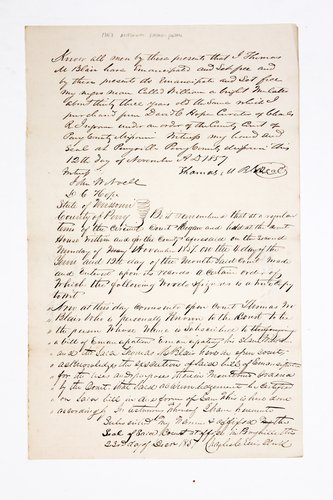 Know all men by these presents that I Thomas
M Blair have Emancipated and Set free and
by these presents do Emancipate and Set free
my negro man Called William a bright Mulatto
about thirty three years old the same which I
purchased from David C Hope Curator of Charles
R under an order of the County Court of
Perry County Missouri Witness my hand and
seal at Perryville Perry County Missouri this
12th day of November A.D 1857
Witness Thomas M Blair Seal
John W Noell
D C Hope
State of Missouri
County of Perry Be it remembered that at a regular
term of the Circuit Court Began and held at the Court
House Within and for the County aforesaid on the Second
Monday of November 1857 on the 4 day of the
Term and 12th day of the Month Said Court made
and Entered upon its records a Certain order of
Which the following Words figures is a true Copy
to wit
Now at this day comes into open Court Thomas M
Blair Who is personally Known to the Court to be
the person Whose Name is subscribed to the foregoing
bill of Emancipation Emancipating his Slave
and the said Thomas M Blair here in open court
acknowledges the execution of said bill of Emancipation
for the uses and purposes therein Mentioned
by the Court that said acknowledgement be Certified
on said bill in due form of law this is here done
accordingly In testimony Whereof I have hereunto
Subscribed My Name & affixed the
Seal of said Court at office in Perryville this
23rd day of 1857
Clerk